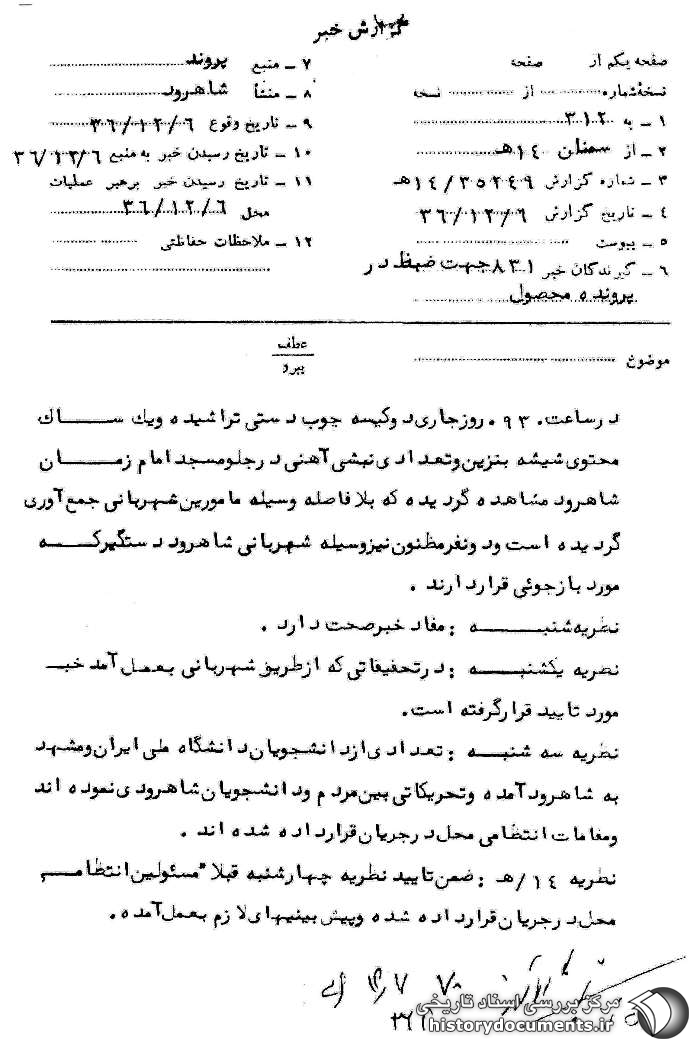 گزارش خبر
صفحه یکم از صفحه
نسخهٔ شماره از نسخه
۱ ـ به ۳۱۲
۲ ـ از سمنان ۱۴هـ
۳ ـ شماره گزارش ۱۴/۳۵۲۴۹هـ
۴ ـ تاریخ گزارش ۳۶/۱۲/۶
۵ ـ پیوست
۶ ـ گیرندگان خبر ۸۳۱ جهت ضبط در
پرونده محصول
۷ ـ منبع پروند
۸ ـ منشأ شاهرود
۹ ـ تاریخ وقوع ۳۶/۱۲/۶
۱۰ ـ تاریخ رسیدن خبر به منبع ۳۶/۱۲/۶
۱۱ ـ تاریخ رسیدن خبر برهبر عملیات
محل ۳۶/۱۲/۶
۱۲ ـ ملاحظات حفاظتی
موضوع
عطف
پیرو
درساعت ۰۹۳۰ روزجاری دوکیسه چوب دستی تراشیده ویك ساك
محتوی شیشه بنزین وتعدادی نبشی آهنی درجلومسجد امام زمان
شاهرود مشاهده گردیده که بلافاصله وسیله مامورین شهربانی جمع آوری
گردیده است ودونفرمظنون نیزوسیله شهربانی شاهرود دستگیرکه
مورد بازجوئی قراردارند .
نظریه شنبه : مفاد خبرصحت دارد .
نظریه یکشنبه : درتحقیقاتی که ازطریق شهربانی بعمل آمد خبر
مورد تایید قرارگرفته است.
نظریه سه شنبه : تعدادی ازدانشجویان دانشگاه ملی ایران ومشهد
به شاهرود آمده وتحریکاتی بین مردم ودانشجویان شاهرودی نموده اند
ومقامات انتظامی محل درجریان قرارداده شده اند .
نظریه ۱۴/هـ : ضمن تایید نظریه چهارشنبه قبلاً مسئولین انتظامی
محل درجریان قرارداده شده وپیش بینیهای لازم بعمل آمده .
مرکز بررسی اسناد تاریخی
historydocuments.ir